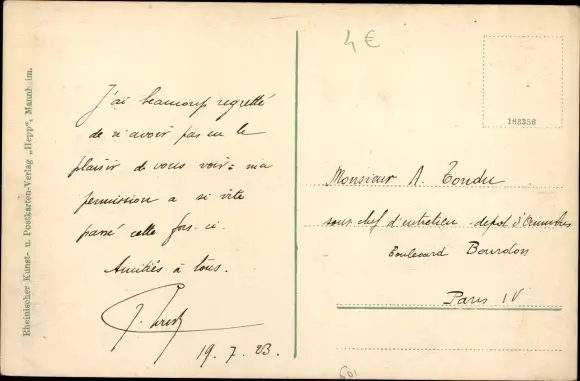 J'ai beaucoup regretté
de n'avoir pas eu le
plaisir de vous voir : ma
permission a si vite
passé cette fois-ci.
Amitiés à tous.
19.7.23.
4€
168356
Monsieur A. Tondu
sous chef d'entretien - dépôt d'Omnibus
Boulevard Bourdon
Paris IV
Rheinischer Kunst- u. Postkarten-Verlag „Hepp", Mannheim.
601